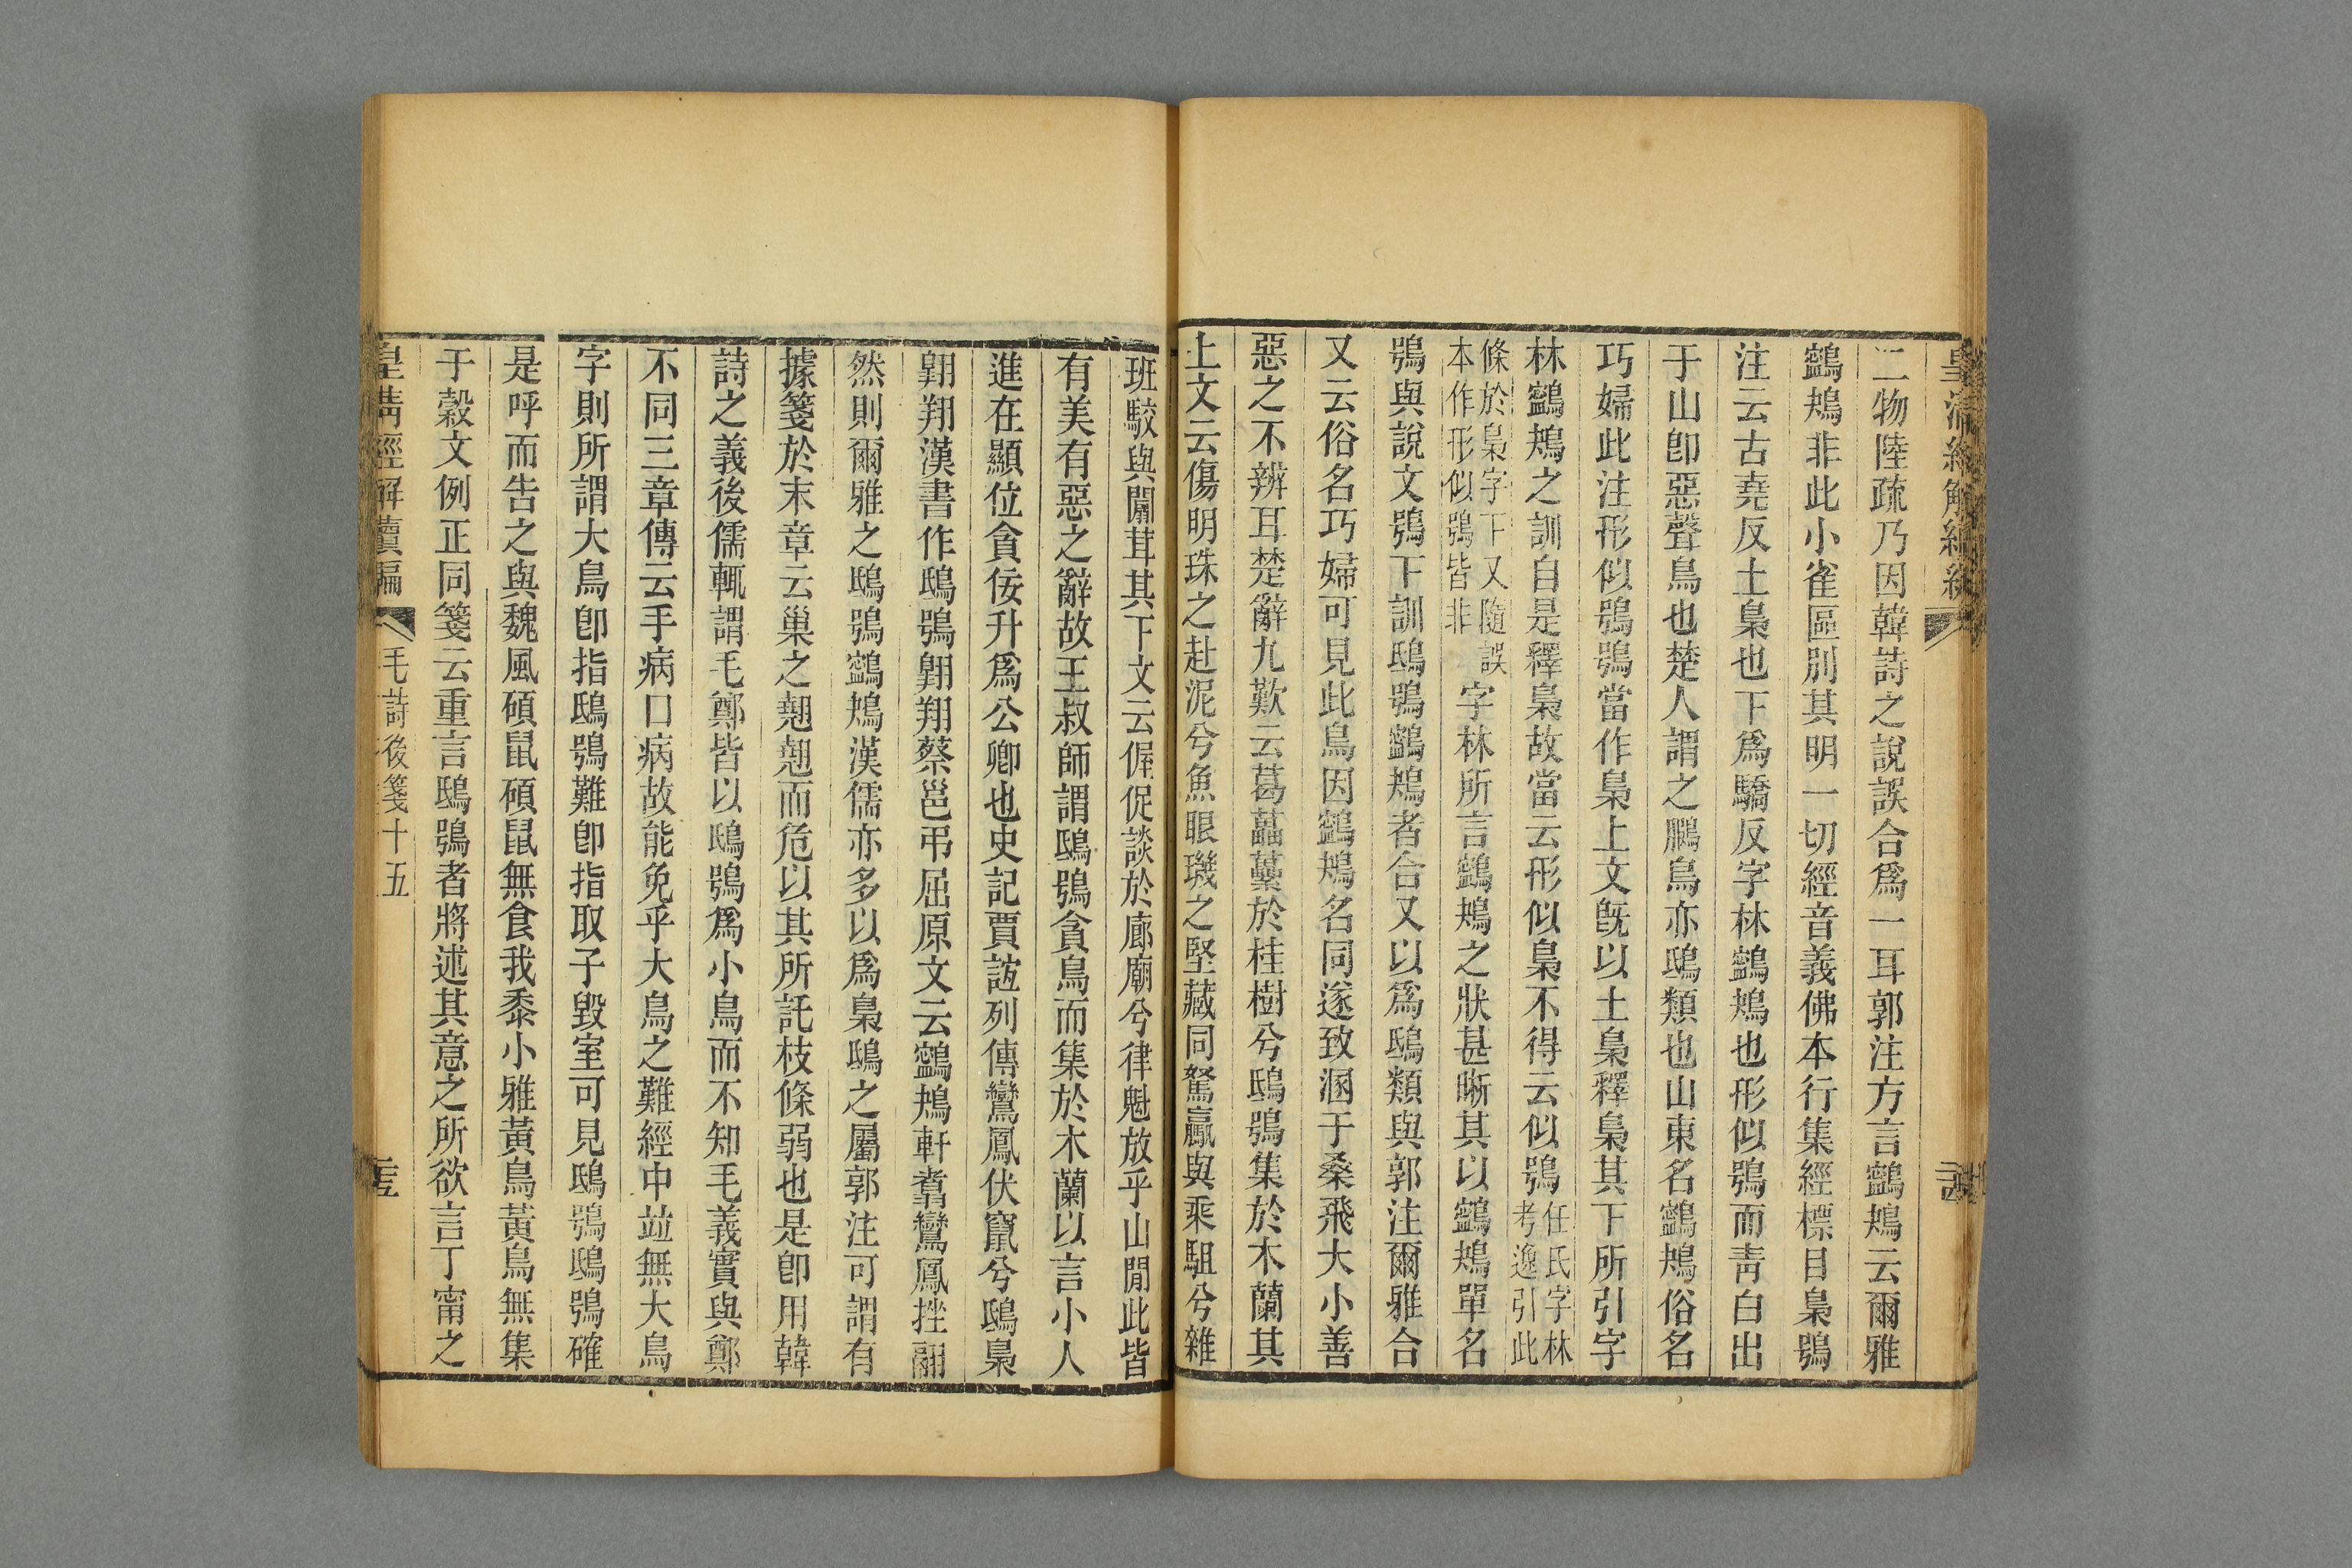 二物陸疏乃因韓詩之說誤合爲一耳郭注方言鸋鴂云爾雅
鸋鴂非此小雀區別其明一切經音義佛本行集經標目梟鴞
注云古堯反土梟也下爲驕反字林鸋鴂也形似鴞而靑白出
于山卽惡聲鳥也楚人謂之鵩鳥亦鴟類也山東名鸋鴂俗名
巧婦此注形似鴞鴞當作梟上文旣以土梟釋梟其下所引字
林鸋鴂之訓自是釋梟故當云形似梟不得云似鴞任氏字林考逸引此
條於梟字下又隨誤本作形似鴞皆非字林所言鸋鴂之狀甚晰其以鸋鴂單名
鴞與說文鴞下訓鴟鴞鸋鴂者合又以爲鴟類與郭注爾雅合
又云俗名巧婦可見此鳥因鸋鴂名同遂致溷于桑飛大小善
惡之不辨耳楚辭九歎云葛藟虆於桂樹兮鴟鴞集於木蘭其
上文云傷明珠之赴泥兮魚眼璣之堅藏同駑驘與乘駔兮雜
班駮與闒茸其下文云偓促談於廊廟兮律魁放乎山閒此皆
有美有惡之辭故王叔師謂鴟鴞貪鳥而集於木蘭以言小人
進在顯位貪佞升爲公卿也史記賈誼列傳鸞鳳伏竄兮鴟梟
翺翔漢書作鴟鴞翺翔蔡邕弔屈原文云鸋鴂軒翥鸞鳳挫翮
然則爾雅之鴟鴞鸋鴂漢儒亦多以爲梟鴟之屬郭注可謂有
據箋於末章云巢之翹翹而危以其所託枝條弱也是卽用韓
詩之義後儒輒謂毛鄭皆以鴟鴞爲小鳥而不知毛義實與鄭
不同三章傳云手病口病故能免乎大鳥之難經中竝無大鳥
字則所謂大鳥卽指鴟鴞難卽指取子毀室可見鴟鴞鴟鴞確
是呼而告之與魏風碩鼠碩鼠無食我黍小雅黃鳥黃鳥無集
于穀文例正同箋云重言鴟鴞者將述其意之所欲言丁甯之
皇淸經解續編 毛詩後箋十五